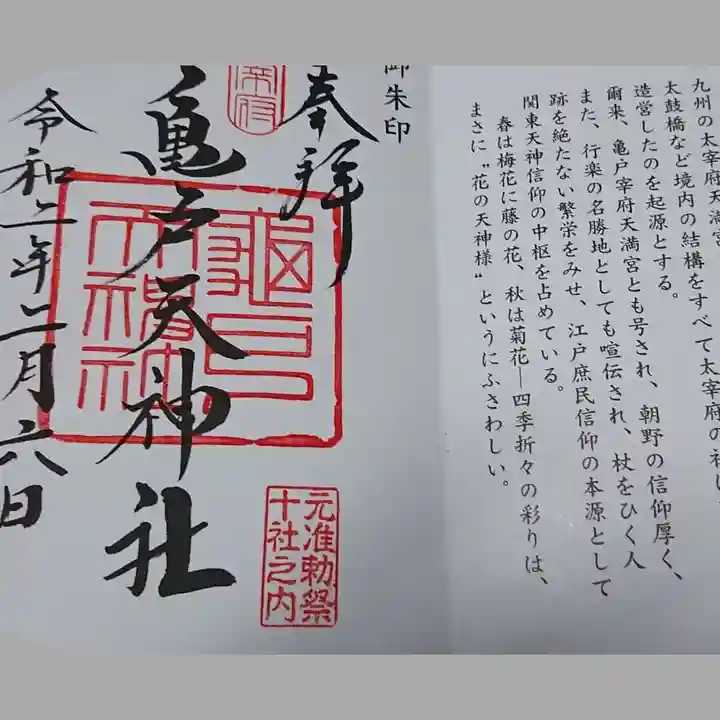 九州の太宰府天満宮
太鼓橋など境内の結構をすべて太宰府の社に
造営したのを起源とする。
爾来、亀戸宰府天満宮とも号され、朝野の信仰厚く、
また、行楽の名勝地としても喧伝され、杖をひく人
跡を絶たない繁栄をみせ、江戸庶民信仰の本源として
関東天神信仰の中枢を占めている。
春は梅花に藤の花、秋は菊花―四季折々の彩りは、
まさに〝花の天神様〟というにふさわしい。
御朱印
奉拝
亀戸天神社
令和二年二月六日
亀戸
天満神
元准勅祭
十社之内